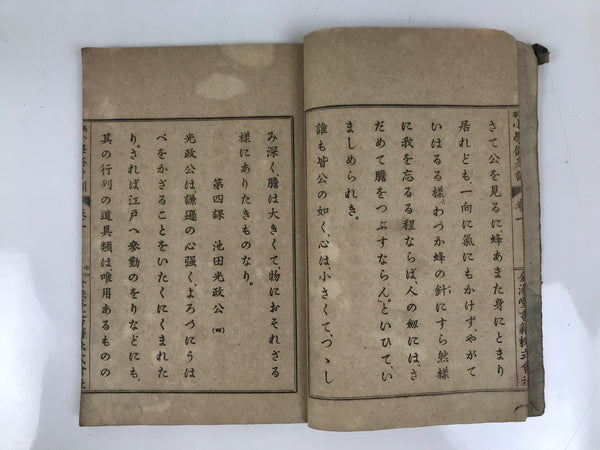 さて公を見るに、蜂あまた身にとまり
居れども、一向に氣にもかけず、やがて
いはるる樣、「わづか蜂の針にすら然樣
に我を忘るる程ならば、人の劒には、さ
だめて膽をつぶすならん。」といひて、い
ましめられき。
誰も皆公の如く、心は、小さくて、つゝし
卷一
金港堂書籍株式會社
み深く、膽は大きくて、物におそれざる
樣にありたきものなり。
第四課 池田光政公(四)
光政公は、謙遜の心強く、よろづにうは
べをかざることをいたくにくまれた
り。されば江戸へ參勤のをりなどにも、
其の行列の道具類は、唯用あるものの
七